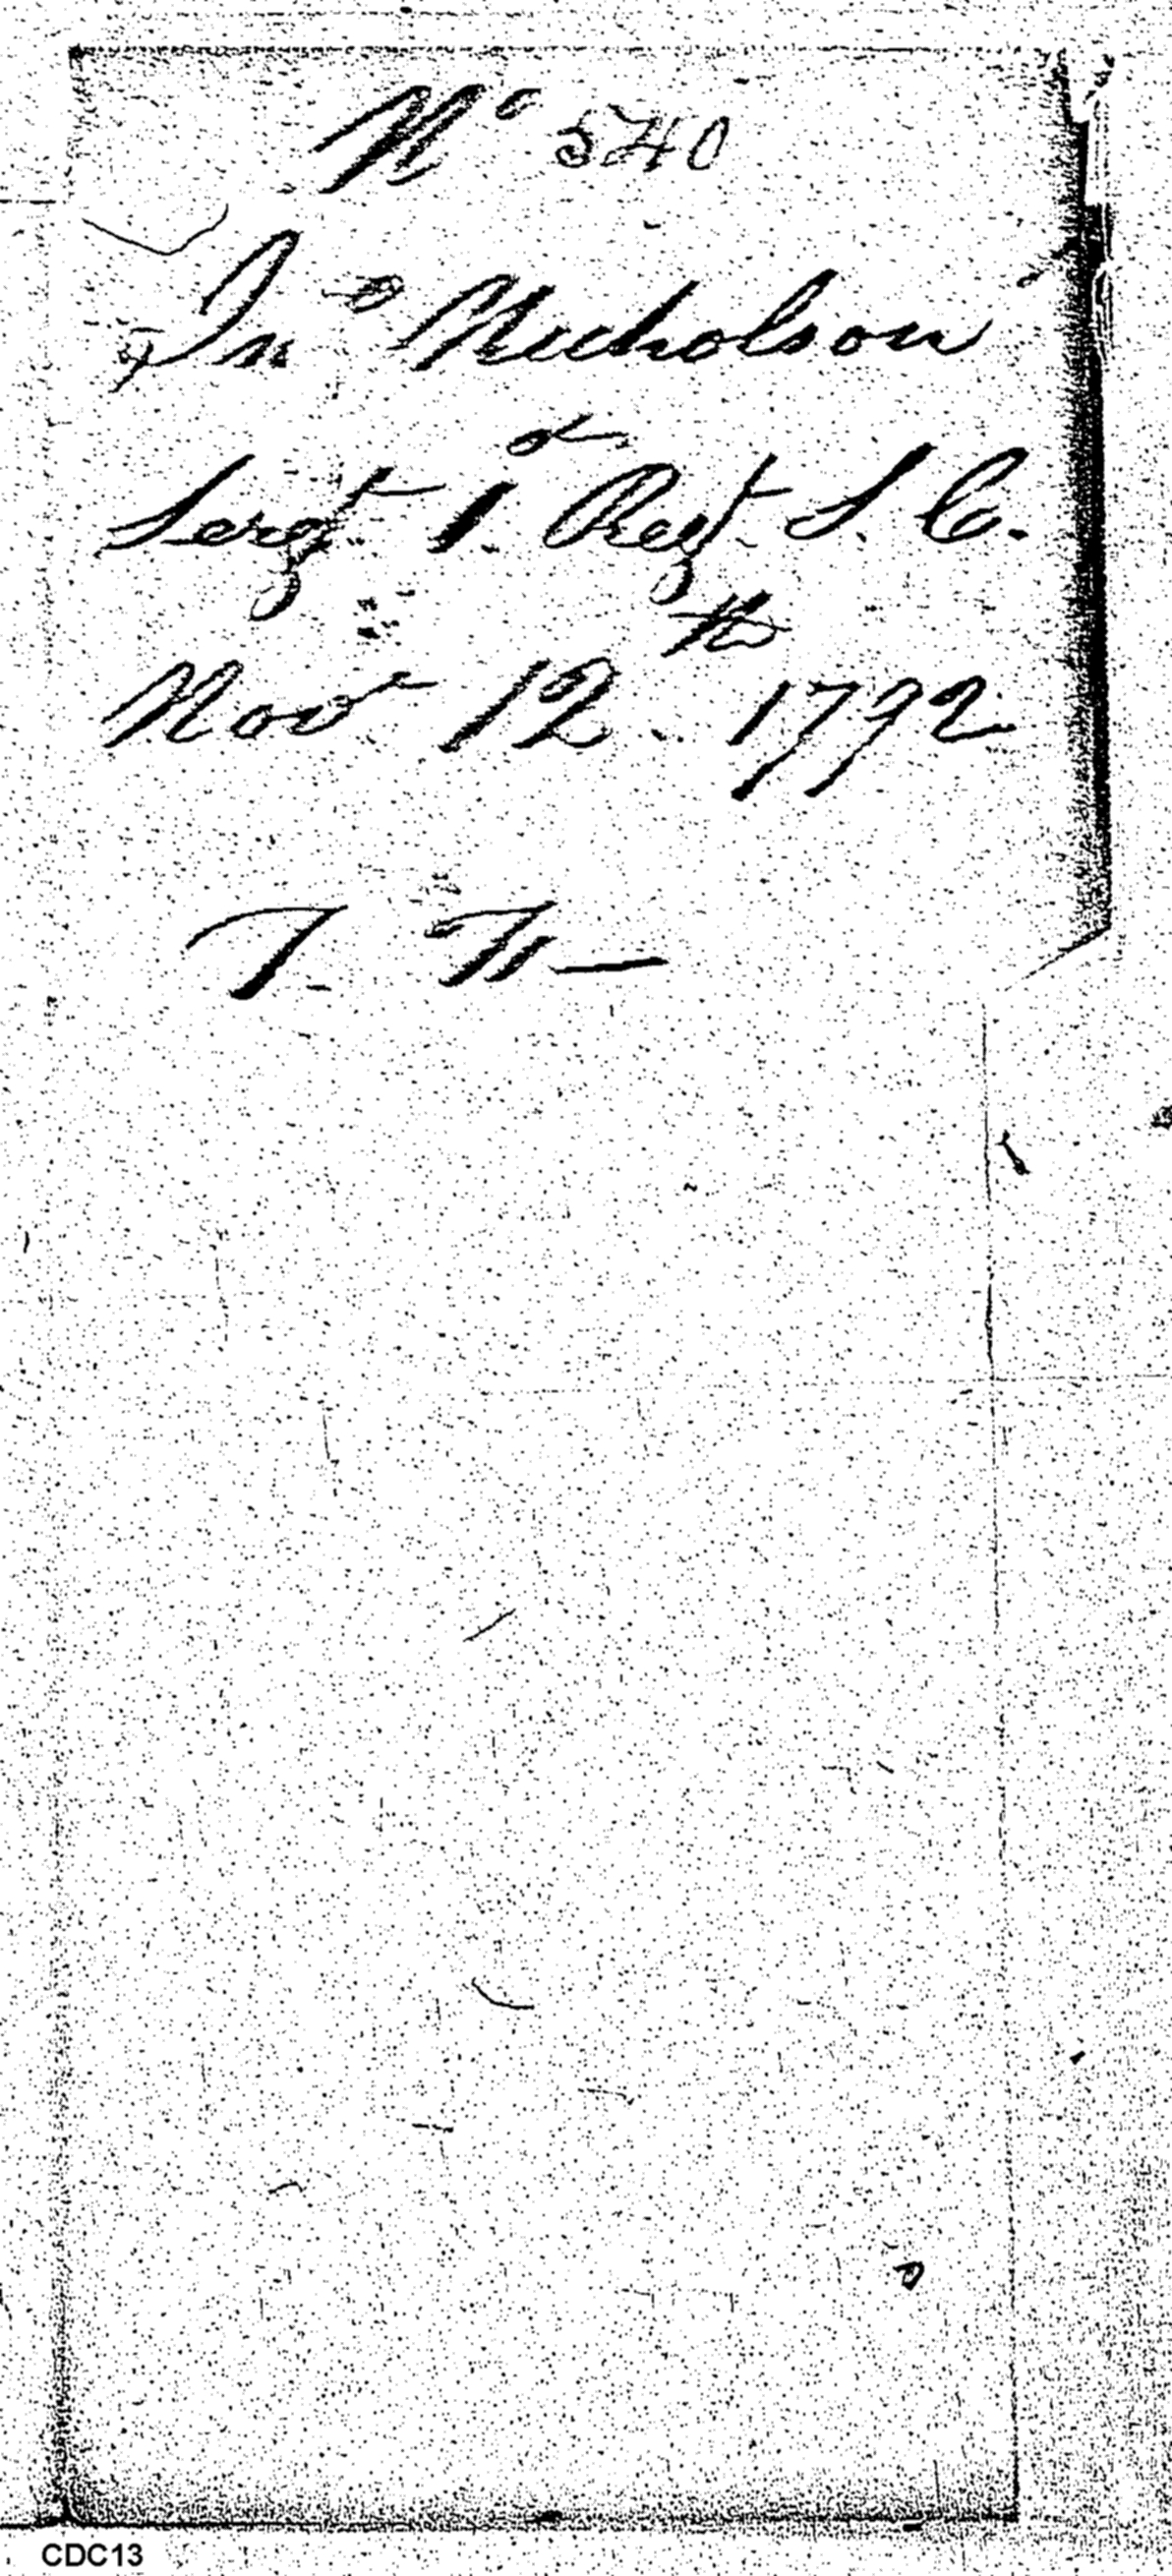 No 540
Jno Nicholson
Sergt 1. Regt. S. C.
Novr 12th 1792
CDC13